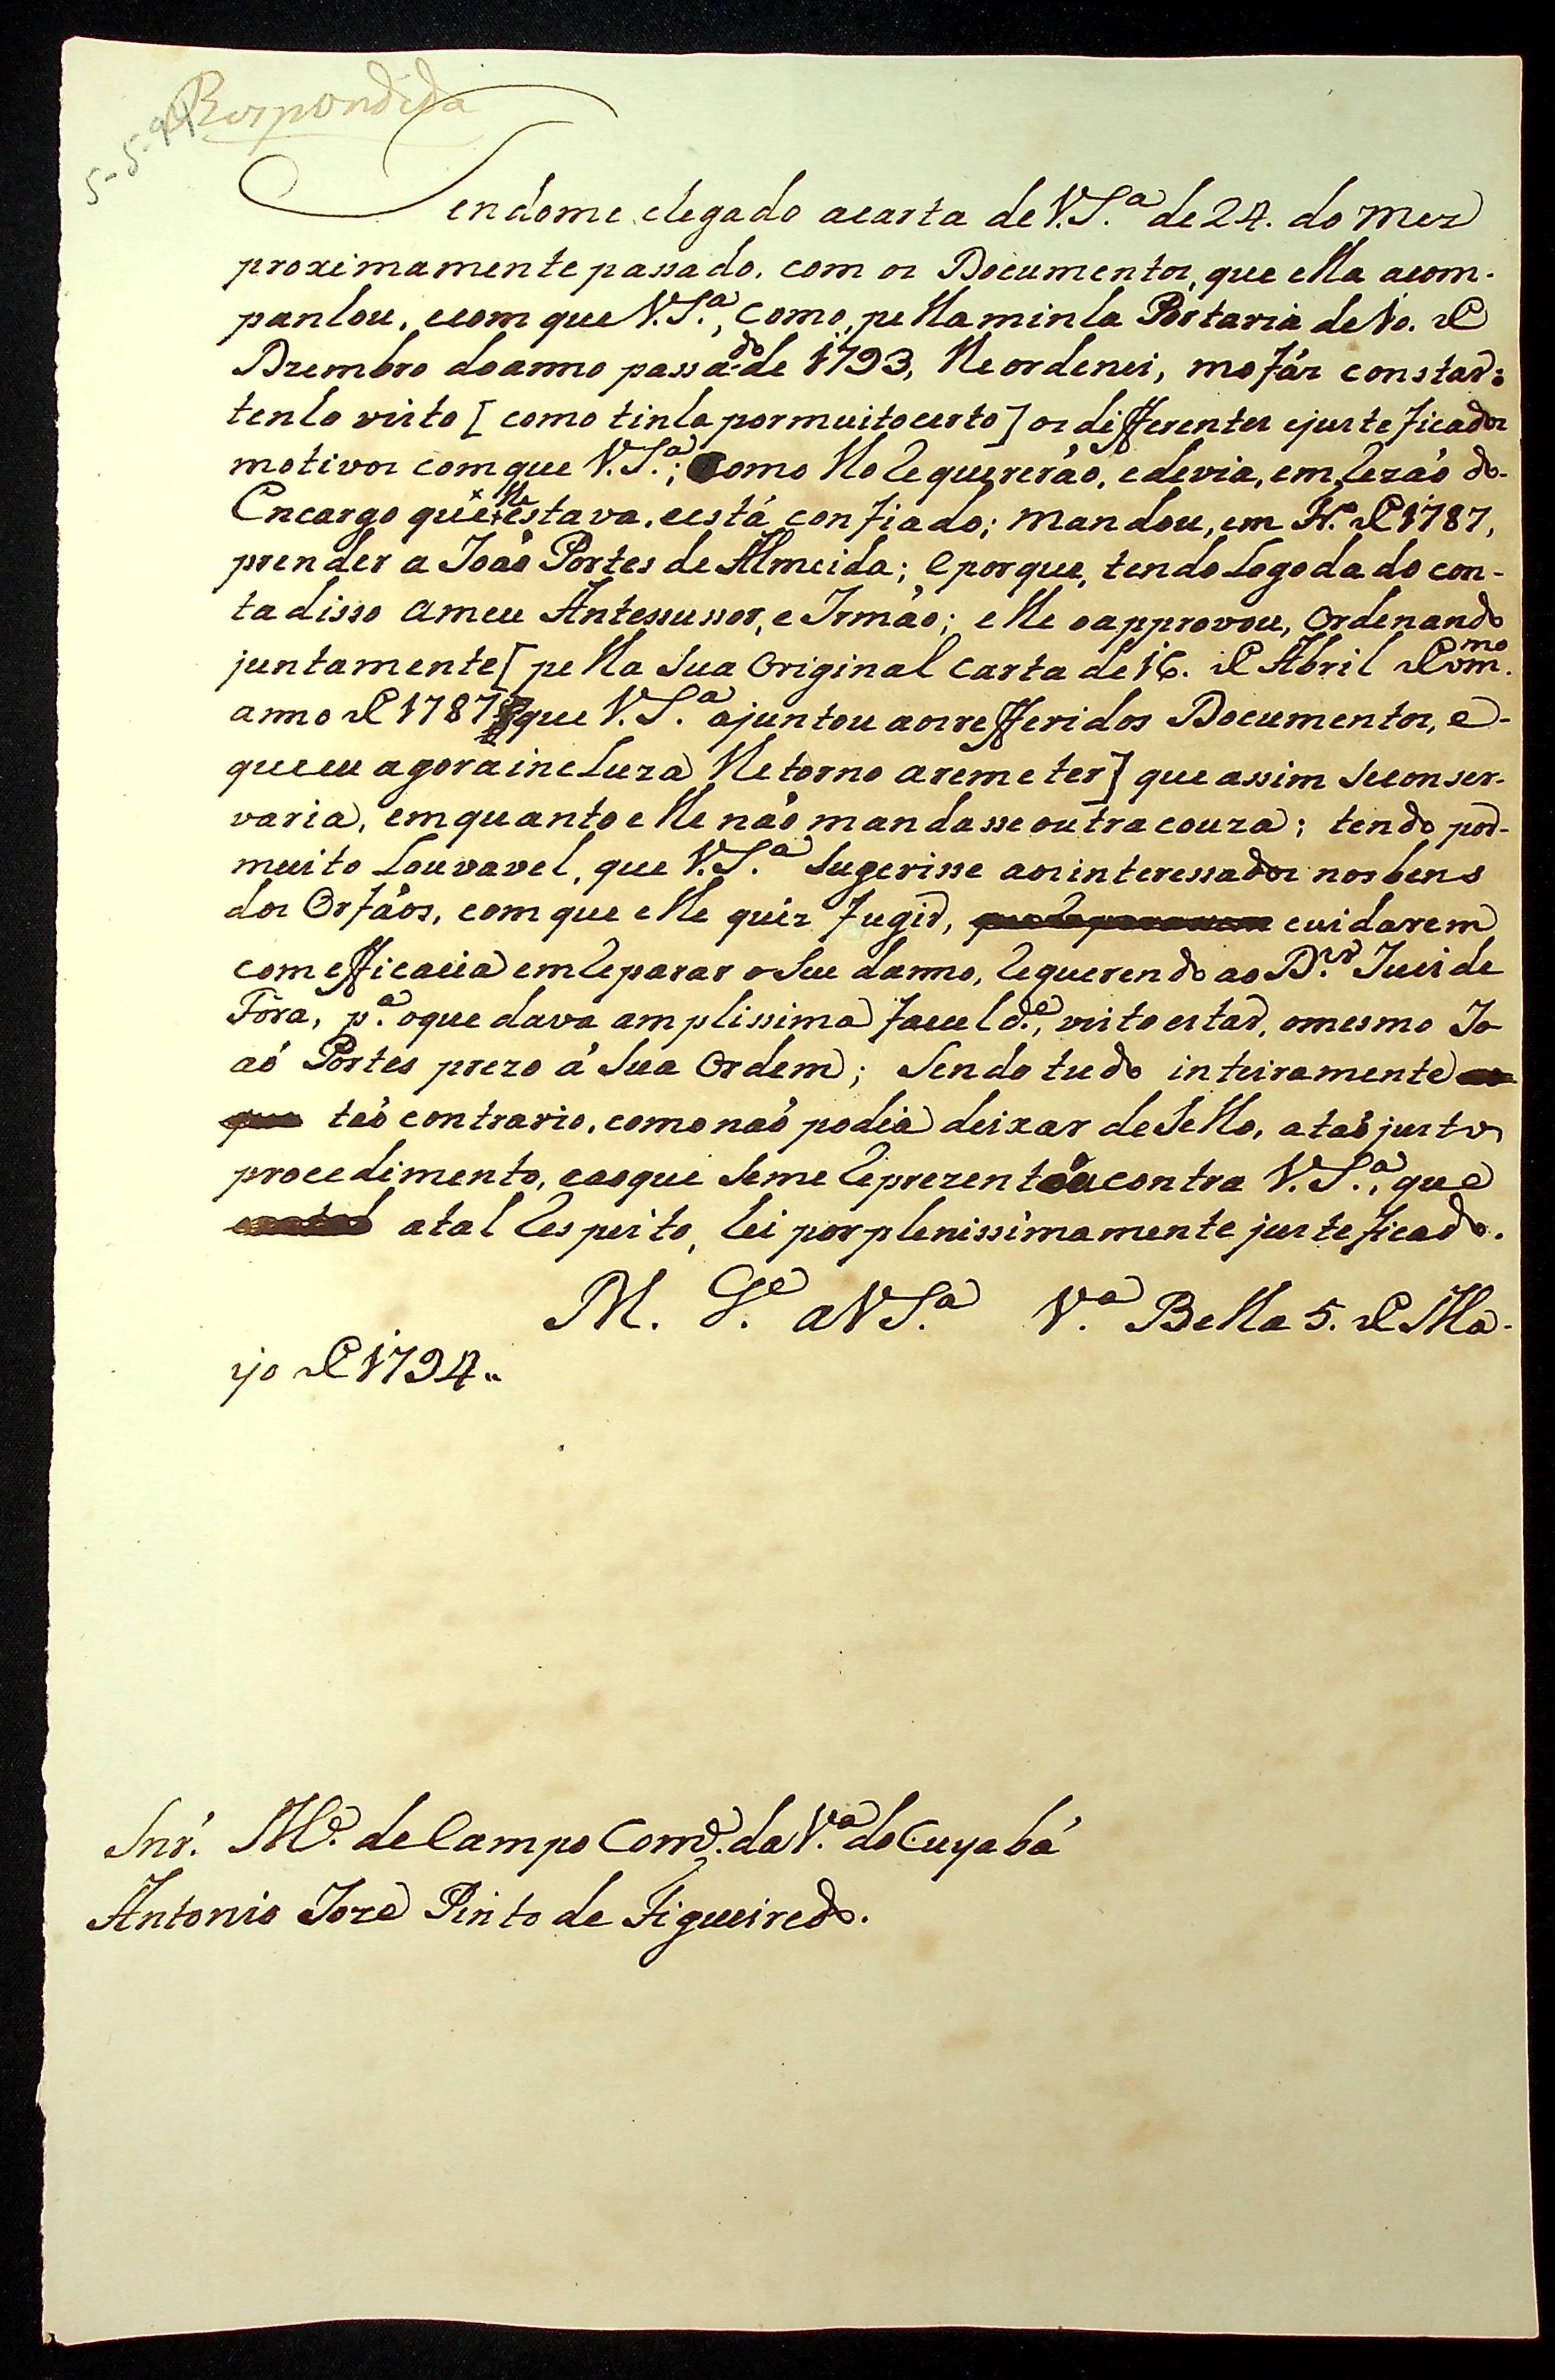 Respondida
5-5-94
Tendome chegado acarta de V.S.ª de 24. do mez
proximamente passado, com os Documentos, que ella acom-
panhou, ecom que V.S.ª, como, pella minha Portaria de 10. de
Dzembro doanno passado de 1793, lhe ordenei, mo fáz constar:
tenho visto [como tinha por muito certo] os differentes ejusteficados
motivos com que V.S.ª; como lho requererão, edevia, em rezão do
Encargo que lhe estava, eestá confiado; mandou, em de 1787,
prender a João Portes de Almeida; e porque, tendo Logo dado con-
ta disso ameu Antessussor, e Irmão; elle o approvou, Ordenando
juntamente [pella Sua Original Carta de 16. de Abril do m.mo
anno de 1787 que V.S.ª ajuntou aos refferidos Documentos, e-
que eu agora incluza lhe torno aremeter] que assim Seconser-
varia, emquanto elle não mandasse outra couza; tendo por
muito Louvavel, que V.S.ª Sugerisse aos interessados nos bens
dos Orfãos, com que elle quiz fugir, cuidarem
com efficacia em reparar o Seu danno, requerendo ao D.or Juis de
Fóra, p.ª oque dava amplissima facul.de, visto estar, omesmo Jo-
aó Portes prezo á Sua Ordem; Sendo tudo inteiramente
taó contrario, como naó podia deixar de Sello, ataó justo
procedimento, eaoque Seme reprezentou contra V.S.ª, que
atal respeito, hei por plenissimamente justeficado.
M. G.e aVS.ª V.ª Bella 5. de Ma-
yo de 1794..
Snr. M.e de Campo Com.e da V.ª do Cuyabá
Antonio Joze Pinto de Figueiredo.